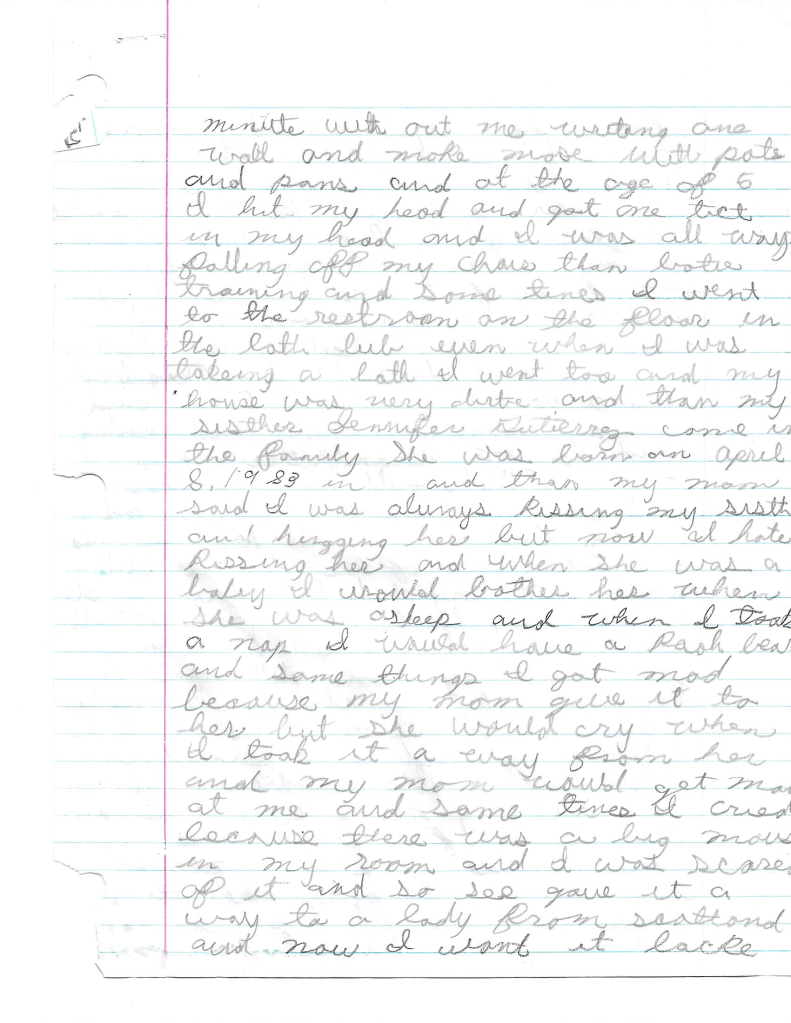 minute with out me writeng one
wall and make mose with pots
and pans and at the age of 5
I hit my head and got one tict
in my head and I was all way
falling off my chair than
training and some times I went
to the restroom on the floor in
the bath tub even when I was
takeing a bath I went too and my
house was very dirte and than my
sisther Jennifer Gutierrez come in
the family She was born on April
8, 1983 in and than my mom
said I was always kissing my sisth
and hugging her but now I hate
Kissing her and when she was a
baby I would bother her when
she was asleep and when I took
a nap I would have a Pooh bea
and some things I got mad
because my mom give it to
her but she would cry when
I took it a way from her
and my mom would get ma
at me and some times I cried
because there was a big mous
in my room and I was scare
of it and so see gave it a
way to a lady from scottond
and now I want it backe